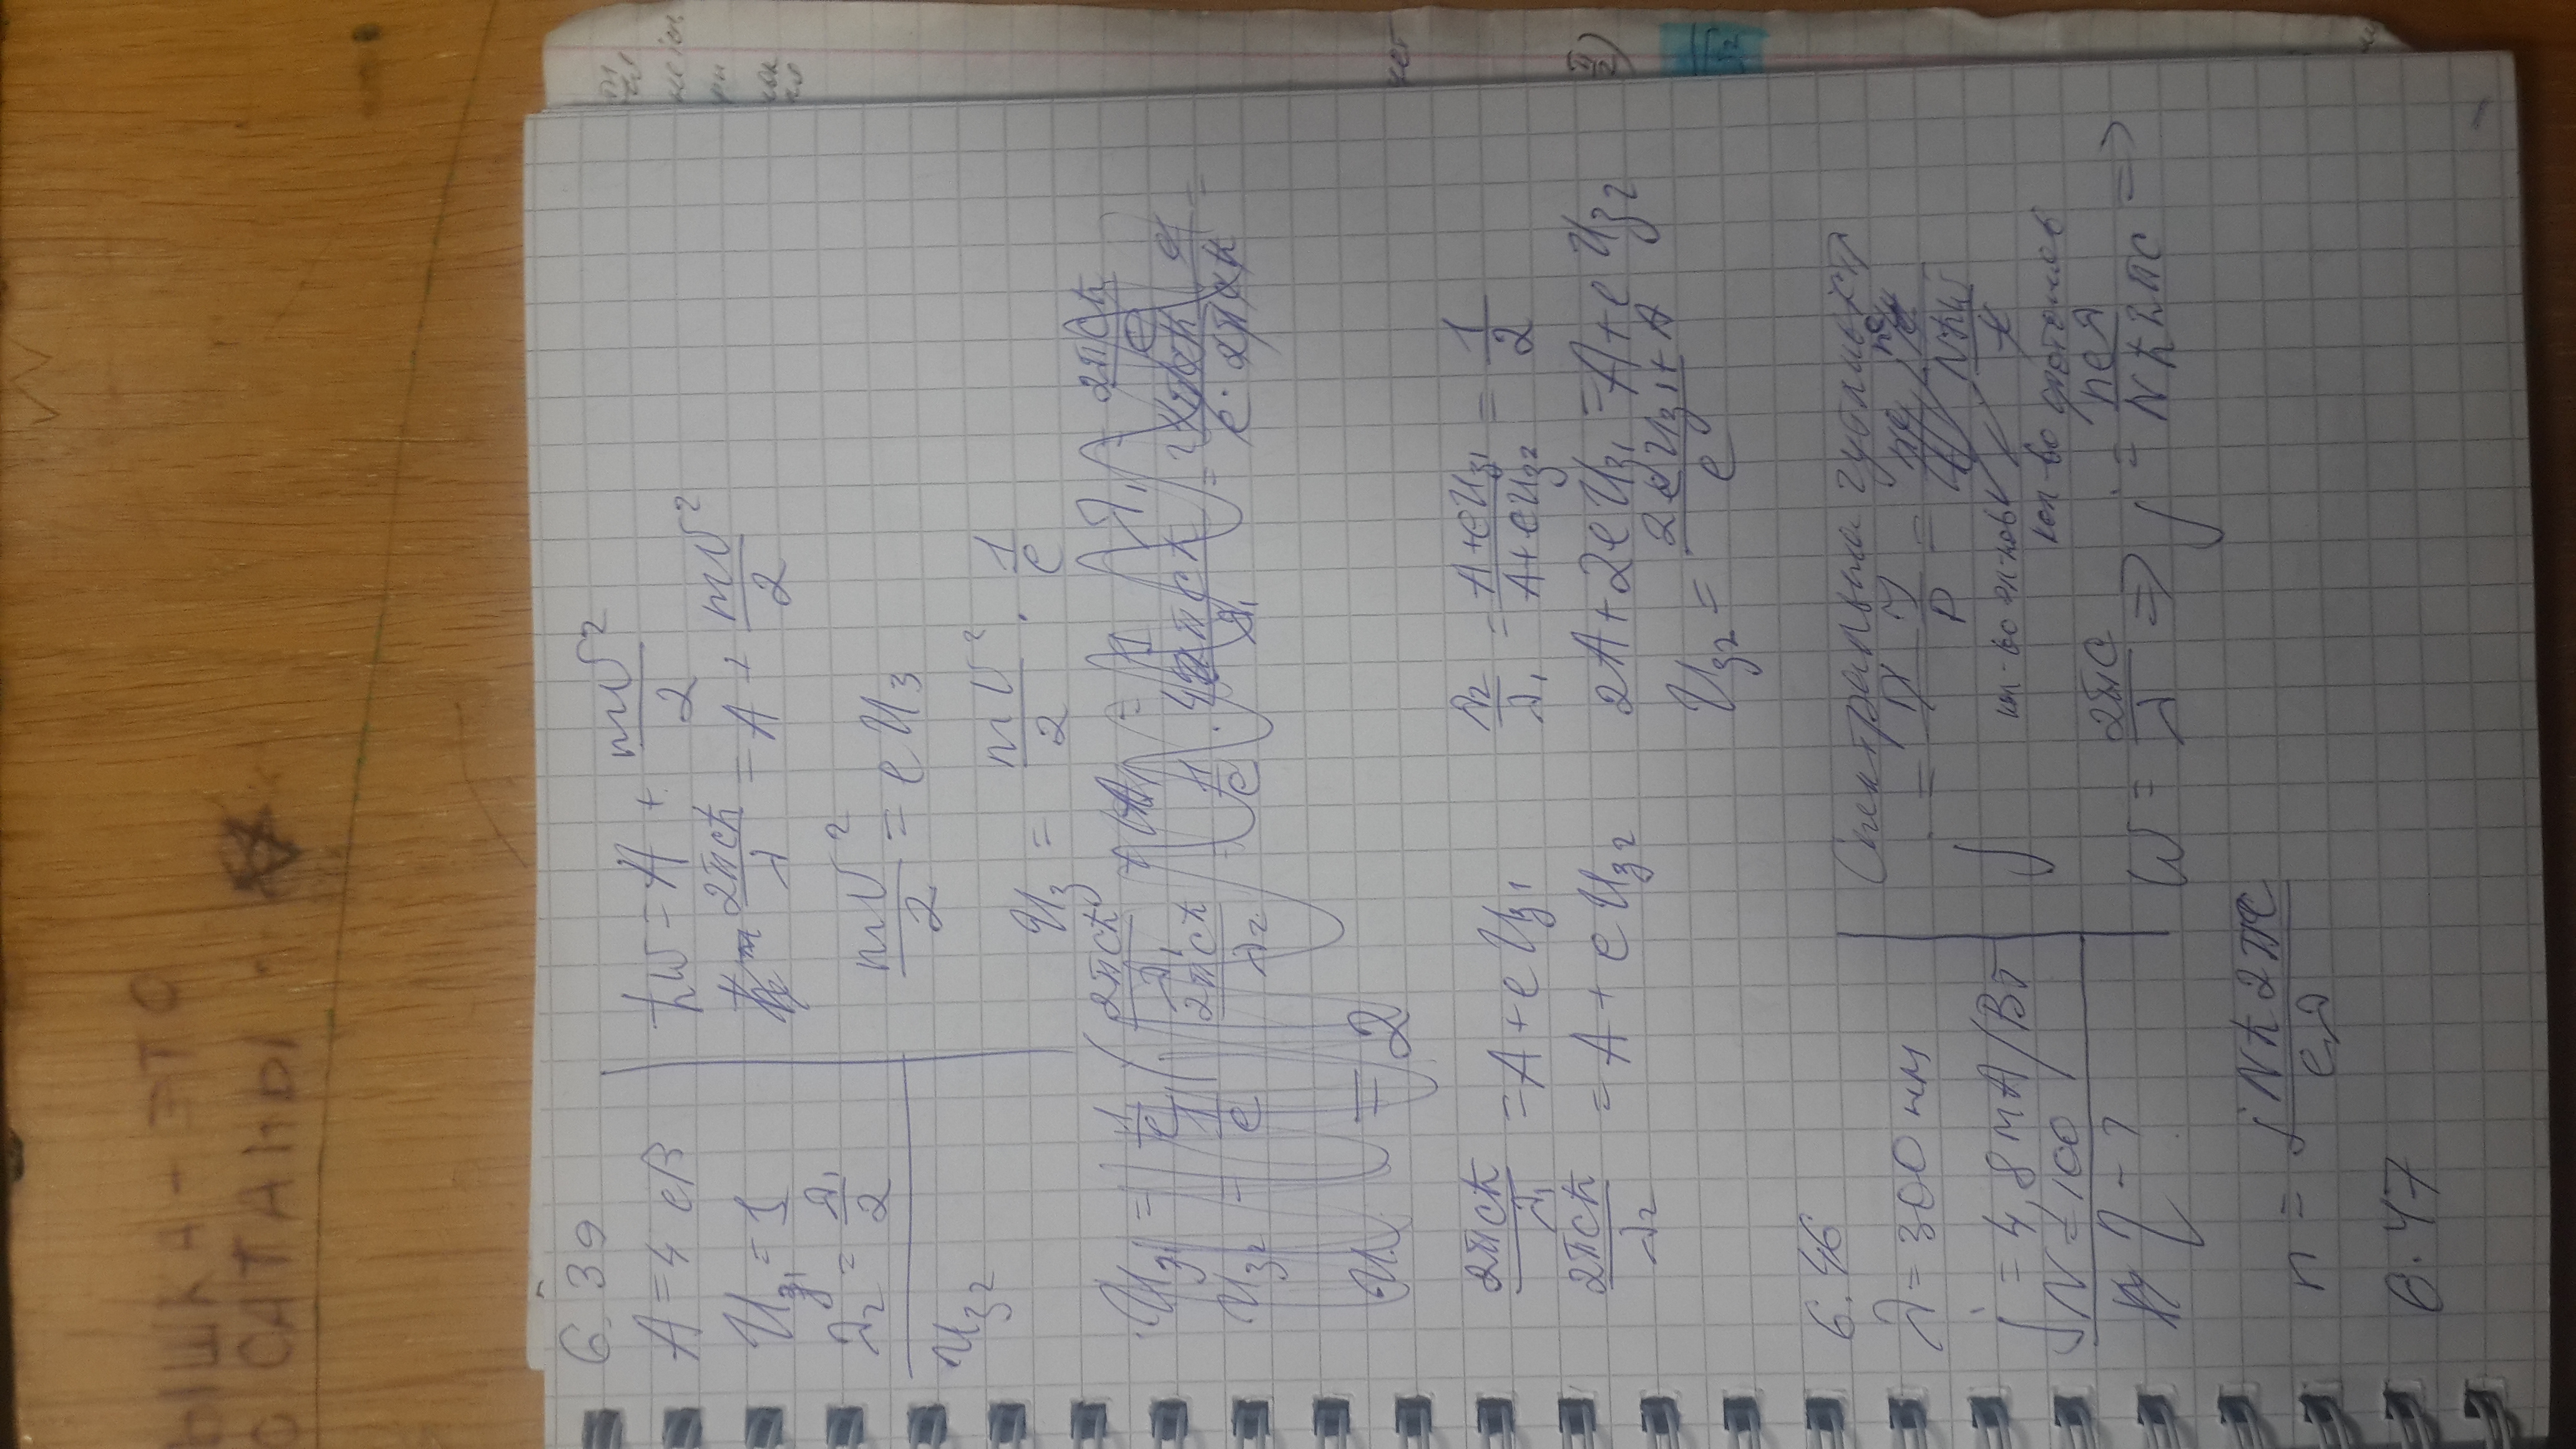 ЫШКА - ЭТО
О САТАНЫ
6.39
A = 4 eB
Uз₁ = 1
λ₂ = λ₁/2
Uз₂
ħω = A + mv²/2
2πcħ/λ = A + mv²/2
mv²/2 = eUз
Uз = mv²/2 · 1/e
Uз₁ = 1/e (2πcħ/λ₁
Uз₂ = 1/e 2πcħ/λ₂ = 1/e ·
U = 2
2πcħ/λ₁ = A + eUз₁
2πcħ/λ₂ = A + eUз₂
λ₂/λ₁ = A+eUз₁/A+eUз₂ = 1/2
2A + 2eUз₁ = A + eUз₂
Uз₂ = 2eUз₁ + A/e
6.46
λ = 300 нм
j = 4,8 мА/Вт
N = 100
η - ?
j = J/P = ne/Nħω
кол-во эл-нов
кол-во фотонов
ω = 2πc/λ => j = neλ/Nħ2πc =>
n = jNħ2πc/eλ
6.47